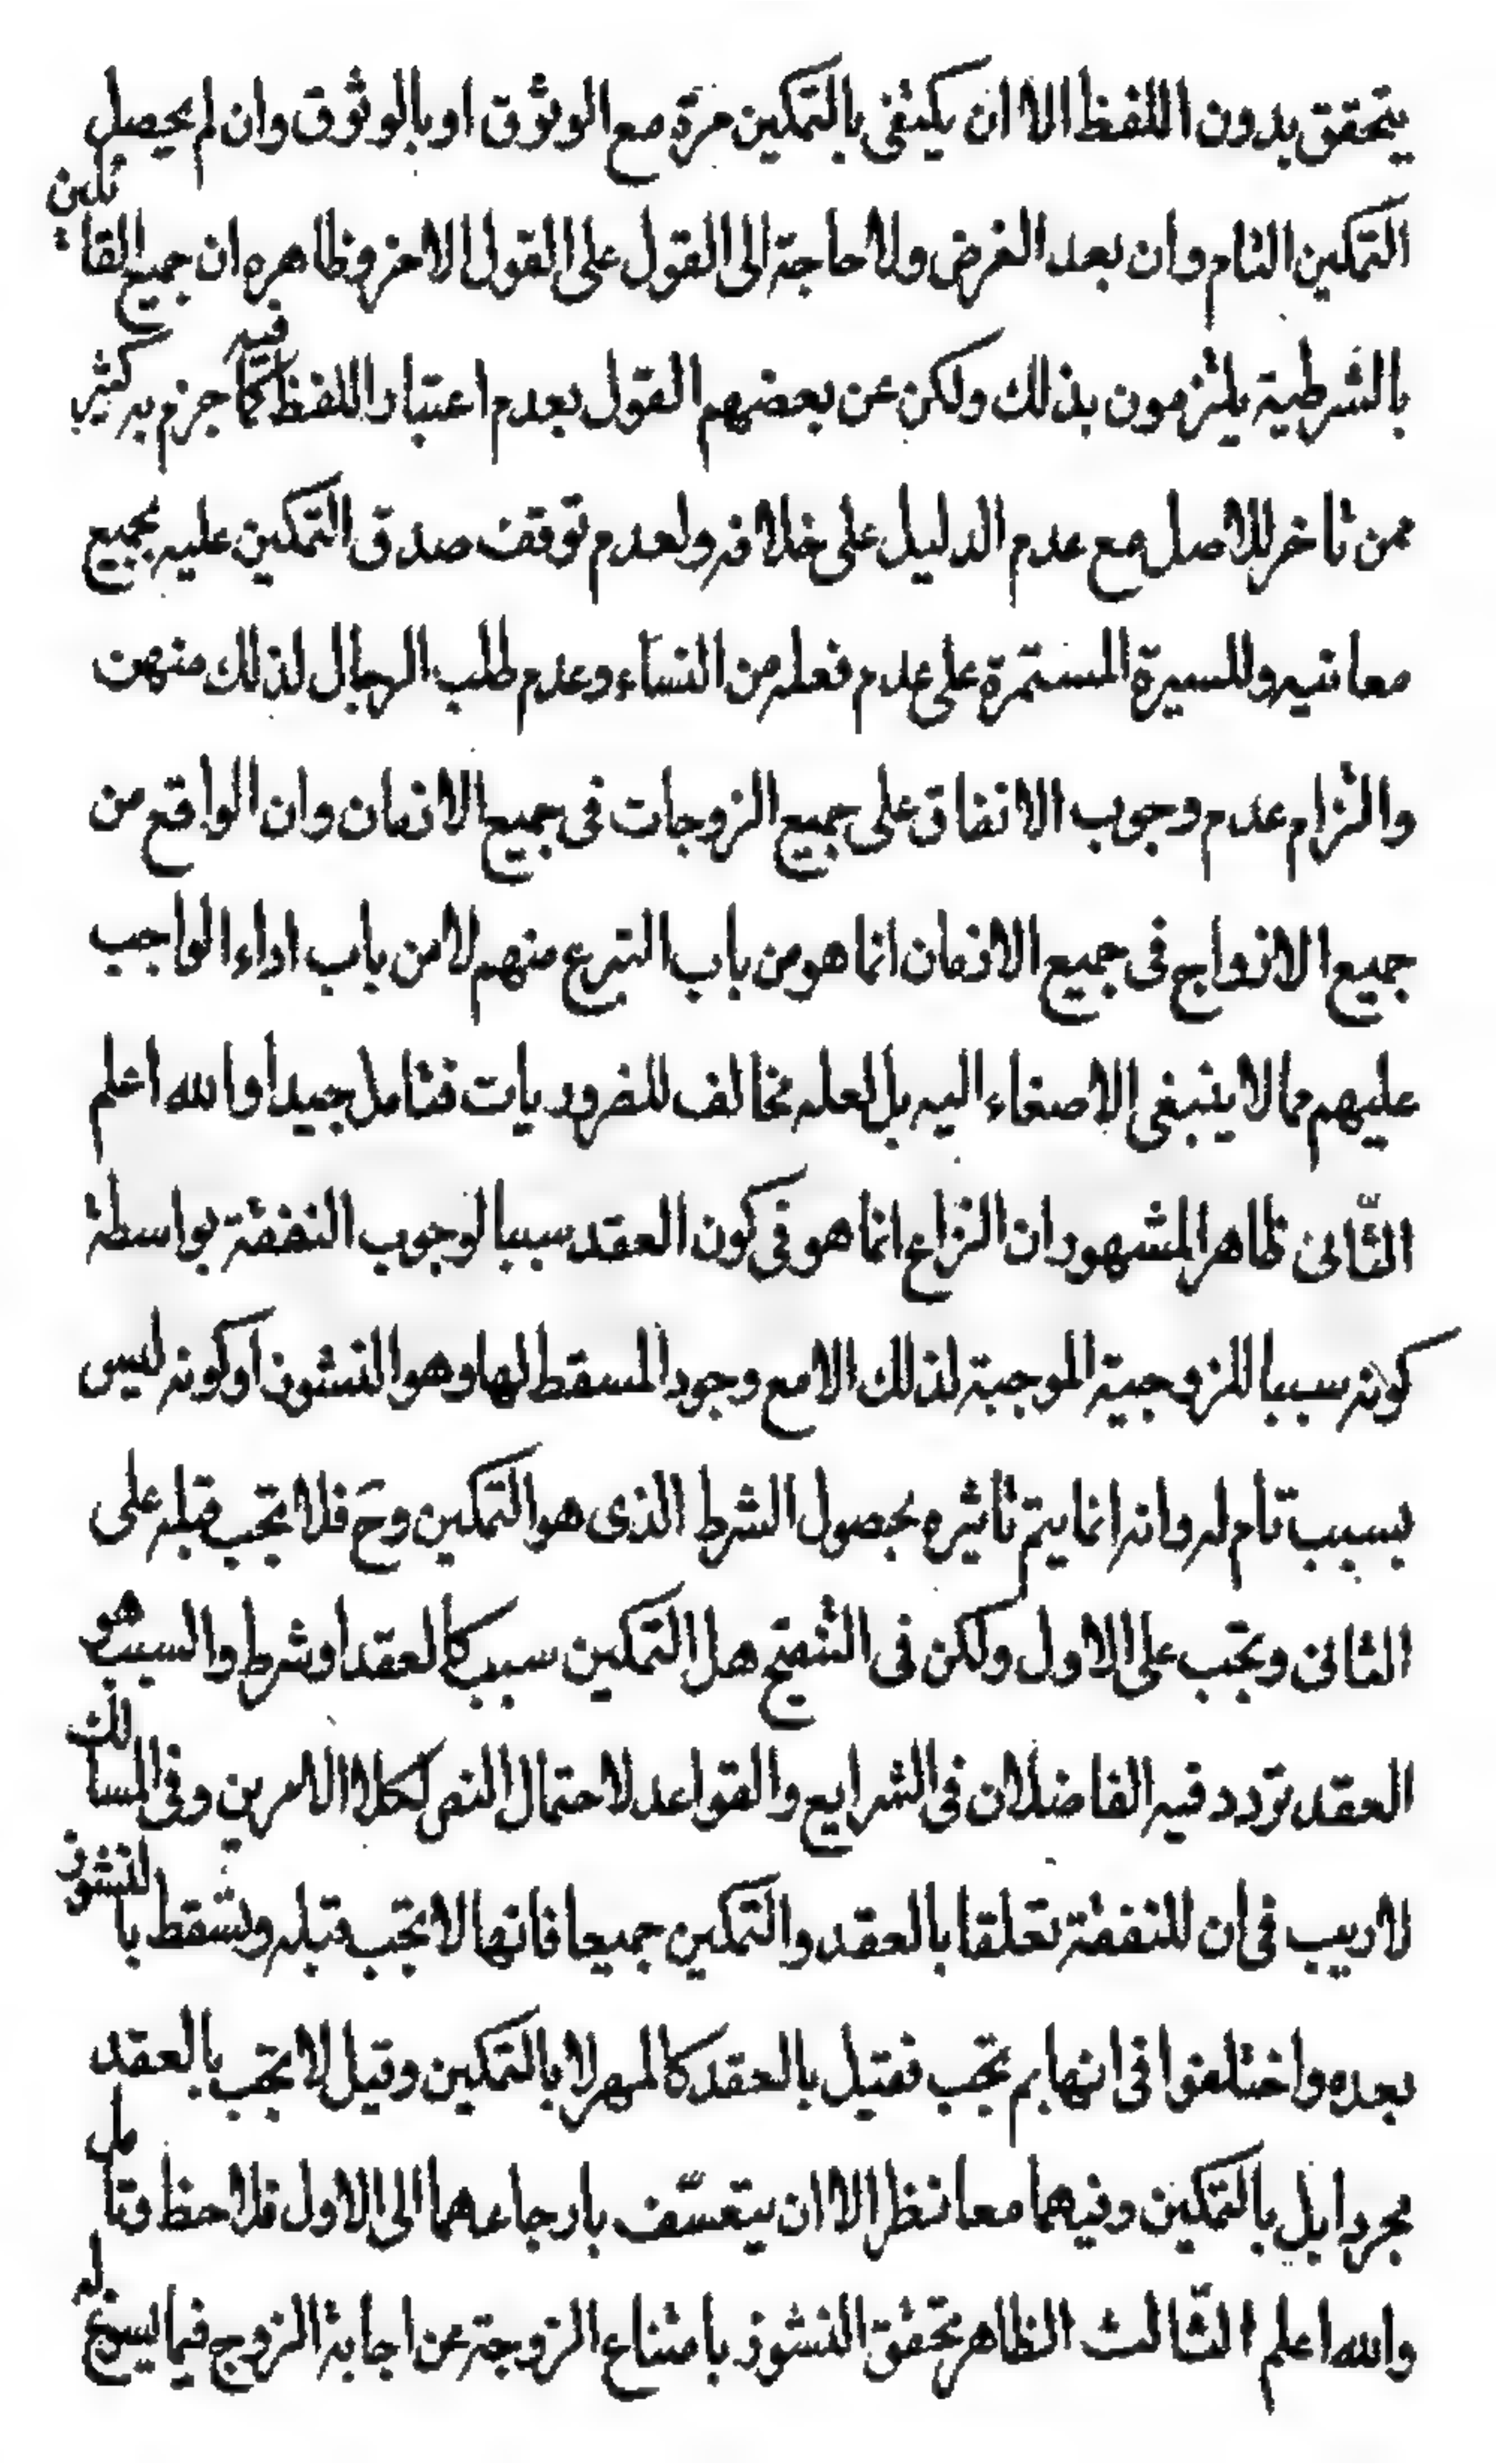 يتحقق بدون اللفظ الا ان يكتفى بالتمكين مرة مع الوثوق او بالوثوق وان لم يحصل
التمكين التام وان بعد الفرض ولا حاجة الى القول على القول الاخر وظاهره ان جميع القائلين
بالشرطية يلتزمون بذلك ولكن عن بعضهم القول بعدم اعتبار اللفظ فيه كما جزم به كثير
ممن تاخر للاصل مع عدم الدليل على خلافه ولعدم توقف صدق التمكين عليه بجميع
معانيه وللسيرة المستمرة على عدم فعله من النساء وعدم طلب الرجال لذلك منهن
والتزام عدم وجوب الانفاق على جميع الزوجات فى جميع الازمان وان الواقع من
جميع الازواج فى جميع الازمان انما هو من باب التبرع منهم لا من باب اداء الواجب
عليهم مما لا ينبغى الاصغاء اليه بل لعله مخالف للضروريات فتامل جيدا والله اعلم
الثّانى ظاهر المشهور ان النزاع انما هو فى كون العقد سببا لوجوب النفقة بواسطة
كونه سببا للزوجية الموجبة لذلك الا مع وجود المسقط لها وهو النشوز او كونه ليس
بسبب تام له وانه انما يتم تاثيره بحصول الشرط الذى هو التمكين وحَ فلا تجب قبله على
الثانى وتجب على الاول ولكن فى التنقيح هل التمكين سبب كالعقد او شرط والسبب هو
العقد تردد فيه الفاضلان فى الشرايع والقواعد لاحتمال النص لكلا الامرين وفى المسالك
لا ريب فى ان للنفقة تعلقا بالعقد والتمكين جميعا فانها لا تجب قبله وتسقط بالنشوز
بعده واختلفوا فى انها بم تجب فقيل بالعقد كالمهر لا بالتمكين وقيل لا تجب بالعقد
مجردا بل بالتمكين وفيهما معا نظر الا ان يتعسّف بارجاعهما الى الاول فلاحظ وتامل
والله اعلم الثّالث الظاهر تحقق النشوز بامتناع الزوجة عن اجابة الزوج فيما يسوغ له